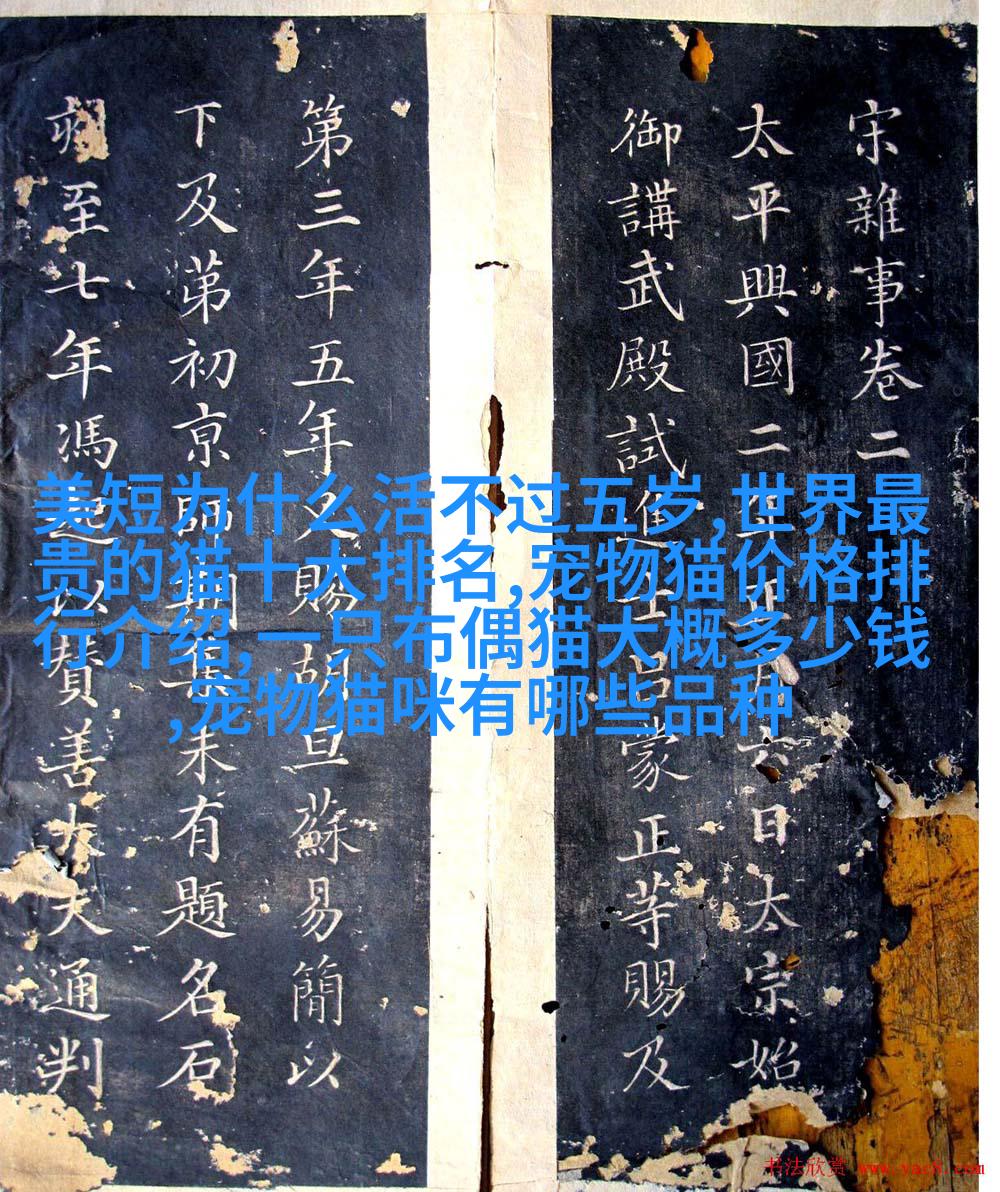 宋雜事卷二
太平興國二年正月六日太宗始
御講武殿試進士呂蒙正等賜及
第三年五年又賜胡旦蘇易簡以
下及苐初京師期集未有題名石
至七年馮起以贊善大夫通判
美短为什么活不过五岁,世界最
贵的猫十大排名,宠物猫价格排
行介绍,一只布偶猫大概多少钱
,宠物猫咪有哪些品种
书法欣赏 www.yac8.com